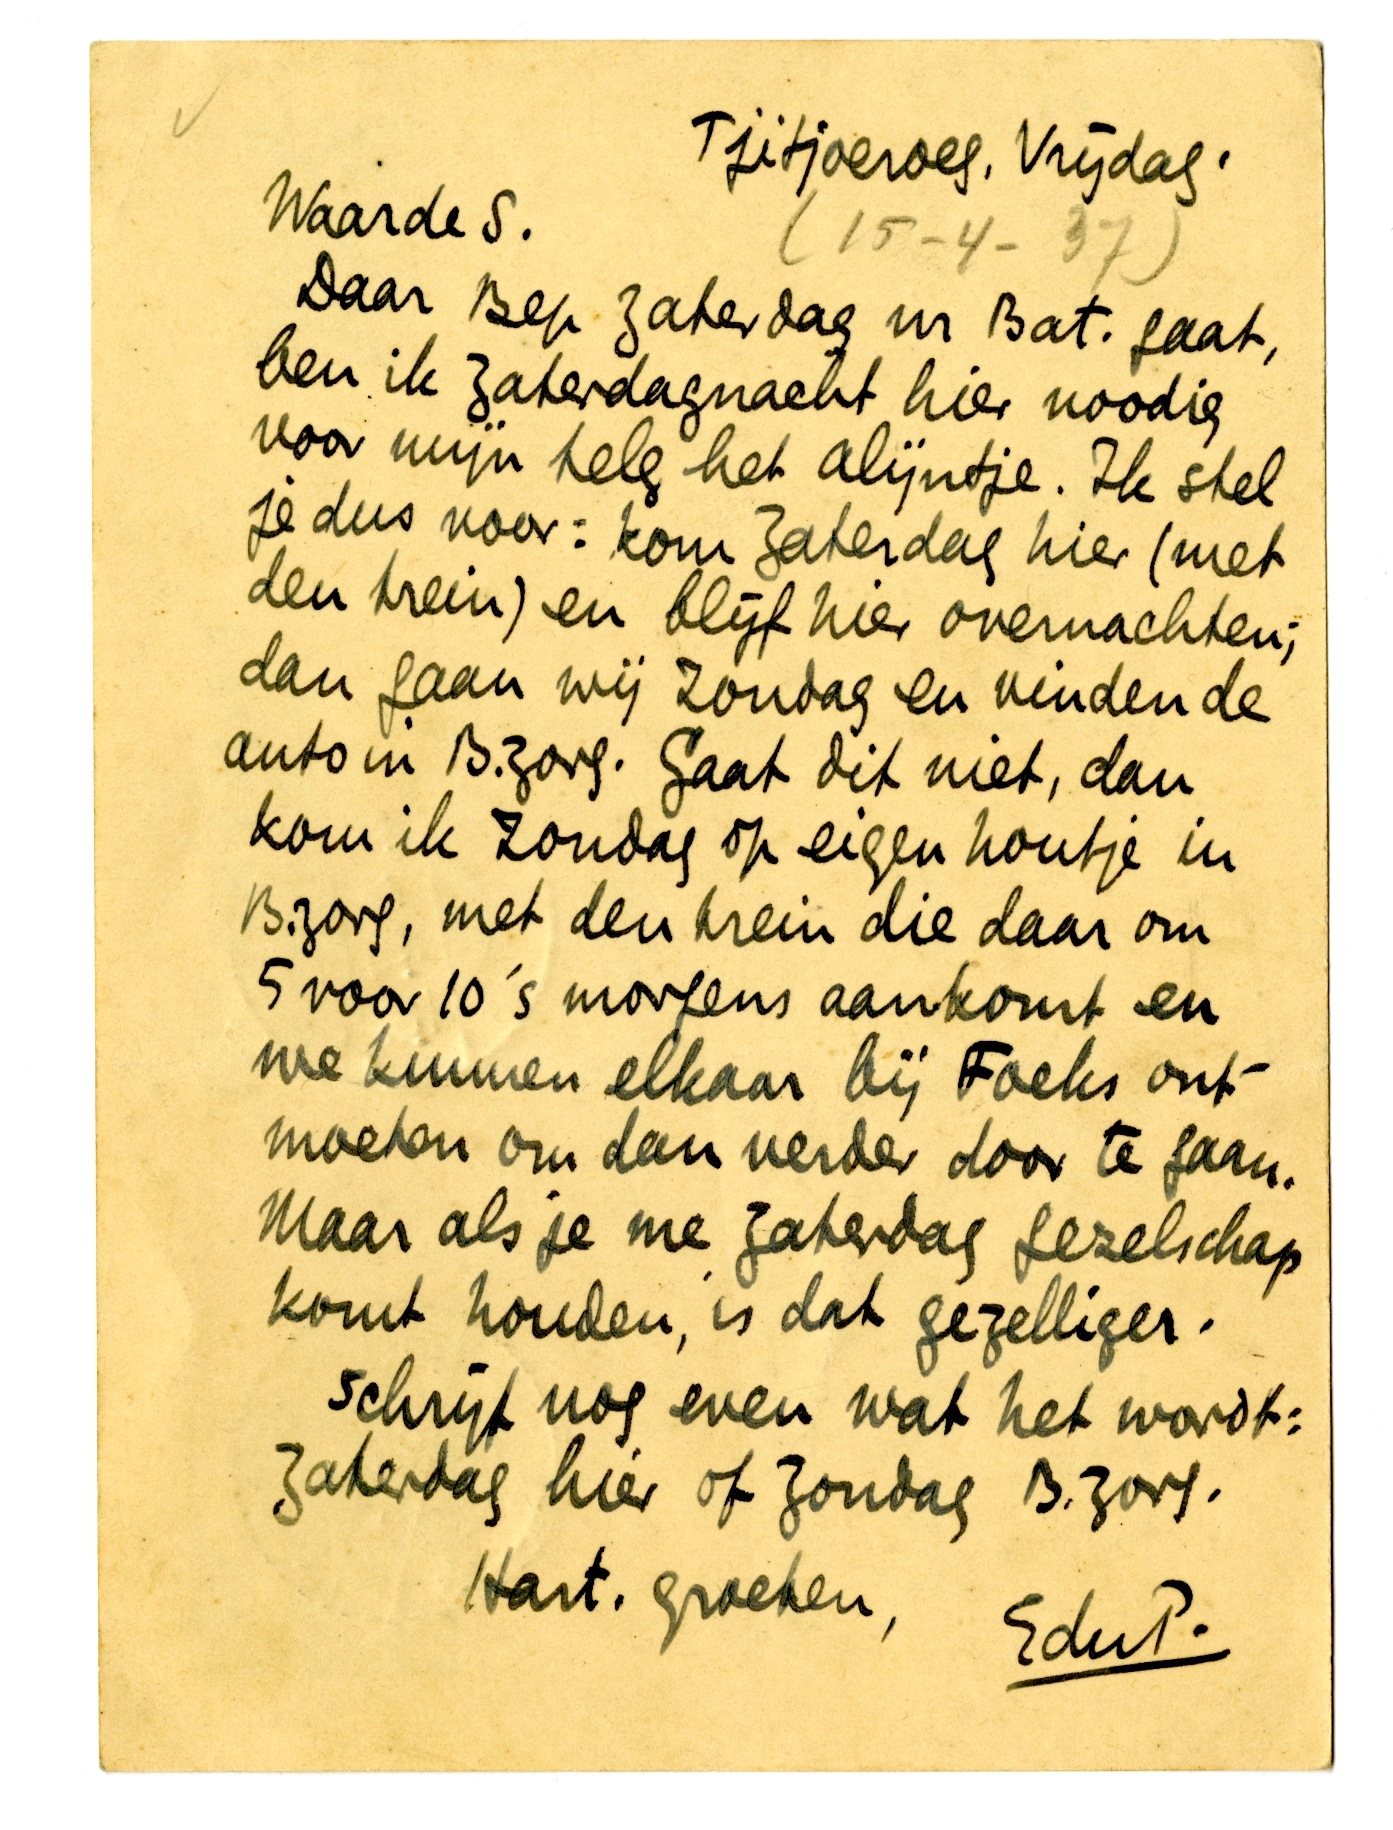 Tjitjoeroeg, Vrijdag.
(15-4-37)
Waarde S.
Daar Bep Zaterdag in Bat. gaat,
ben ik Zaterdagnacht hier noodig
voor mijn telg het Alijntje. Ik stel
je dus voor: kom Zaterdag hier (met
den trein) en blijf hier overnachten;
dan gaan wij Zondag en vinden de
auto in B.zorg. Gaat dit niet, dan
kom ik Zondag op eigen houtje in
B.zorg, met den trein die daar om
5 voor 10 's morgens aankomt en
we kunnen elkaar bij Foeks ont-
moeten om dan verder door te gaan.
Maar als je me Zaterdag gezelschap
komt houden, is dat gezelliger.
Schrijf nog even wat het wordt:
Zaterdag hier of Zondag B.zorg.
Hart. groeten,
EduP.